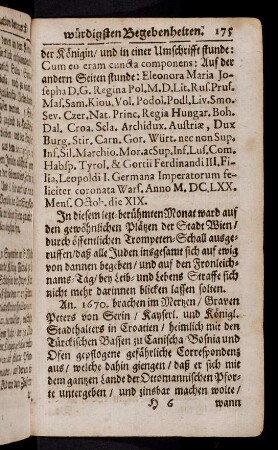 würdigsten Begebenheiten. 175
der Königin/ und in einer Umschrifft stunde:
Cum eo eram cuncta componens: Auf der
andern Seiten stunde: Eleonora Maria Jo-
sepha D.G. Regina Pol. M.D. Lit. Rus. Prus.
Mas. Sam. Kiou. Vol. Podol. Podl. Liv. Smo.
Sev. Czer. Nat. Princ. Regia Hungar. Boh.
Dal. Croa. Sela. Archidux. Austriæ, Dux
Burg. Stir. Carn. Gor. Würt. nec non Sup.
Inf. Sil. Marchio. Mor. ac Sup. Inf. Lus. Com.
Habsp. Tyrol. & Gortii Ferdinandi III. Fi-
lia, Leopoldi I. Germana Imperatorum fe-
liciter coronata Wars. Anno M, DC, LXX.
Mens. Octob. die XIX.
In diesem letzt-berühmten Monat ward auf
den gewöhnlichen Plätzen der Stadt Wien/
durch öffentlichen Trompeten-Schall ausge-
ruffen/ daß alle Juden insgesamt sich auf ewig
von dannen begeben/ und auf den Fronleich-
nams-Tag/ bey Leib- und Lebens Straffe sich
nicht mehr darinnen blicken lassen solten.
An. 1670. brachen im Mertzen/ Graven
Peters von Serin/ Kayserl. und Königl.
Stadthalters in Croatien/ heimlich mit den
Türckischen Bassen zu Canischa/ Bosnia und
Ofen gepflogene gefährliche Correspondenz
aus/ welche dahin giengen/ daß er sich mit
dem ganzen Lande der Ottomannischen Pfor-
te untergeben/ und zinsbar machen wolte/
H 6 wann